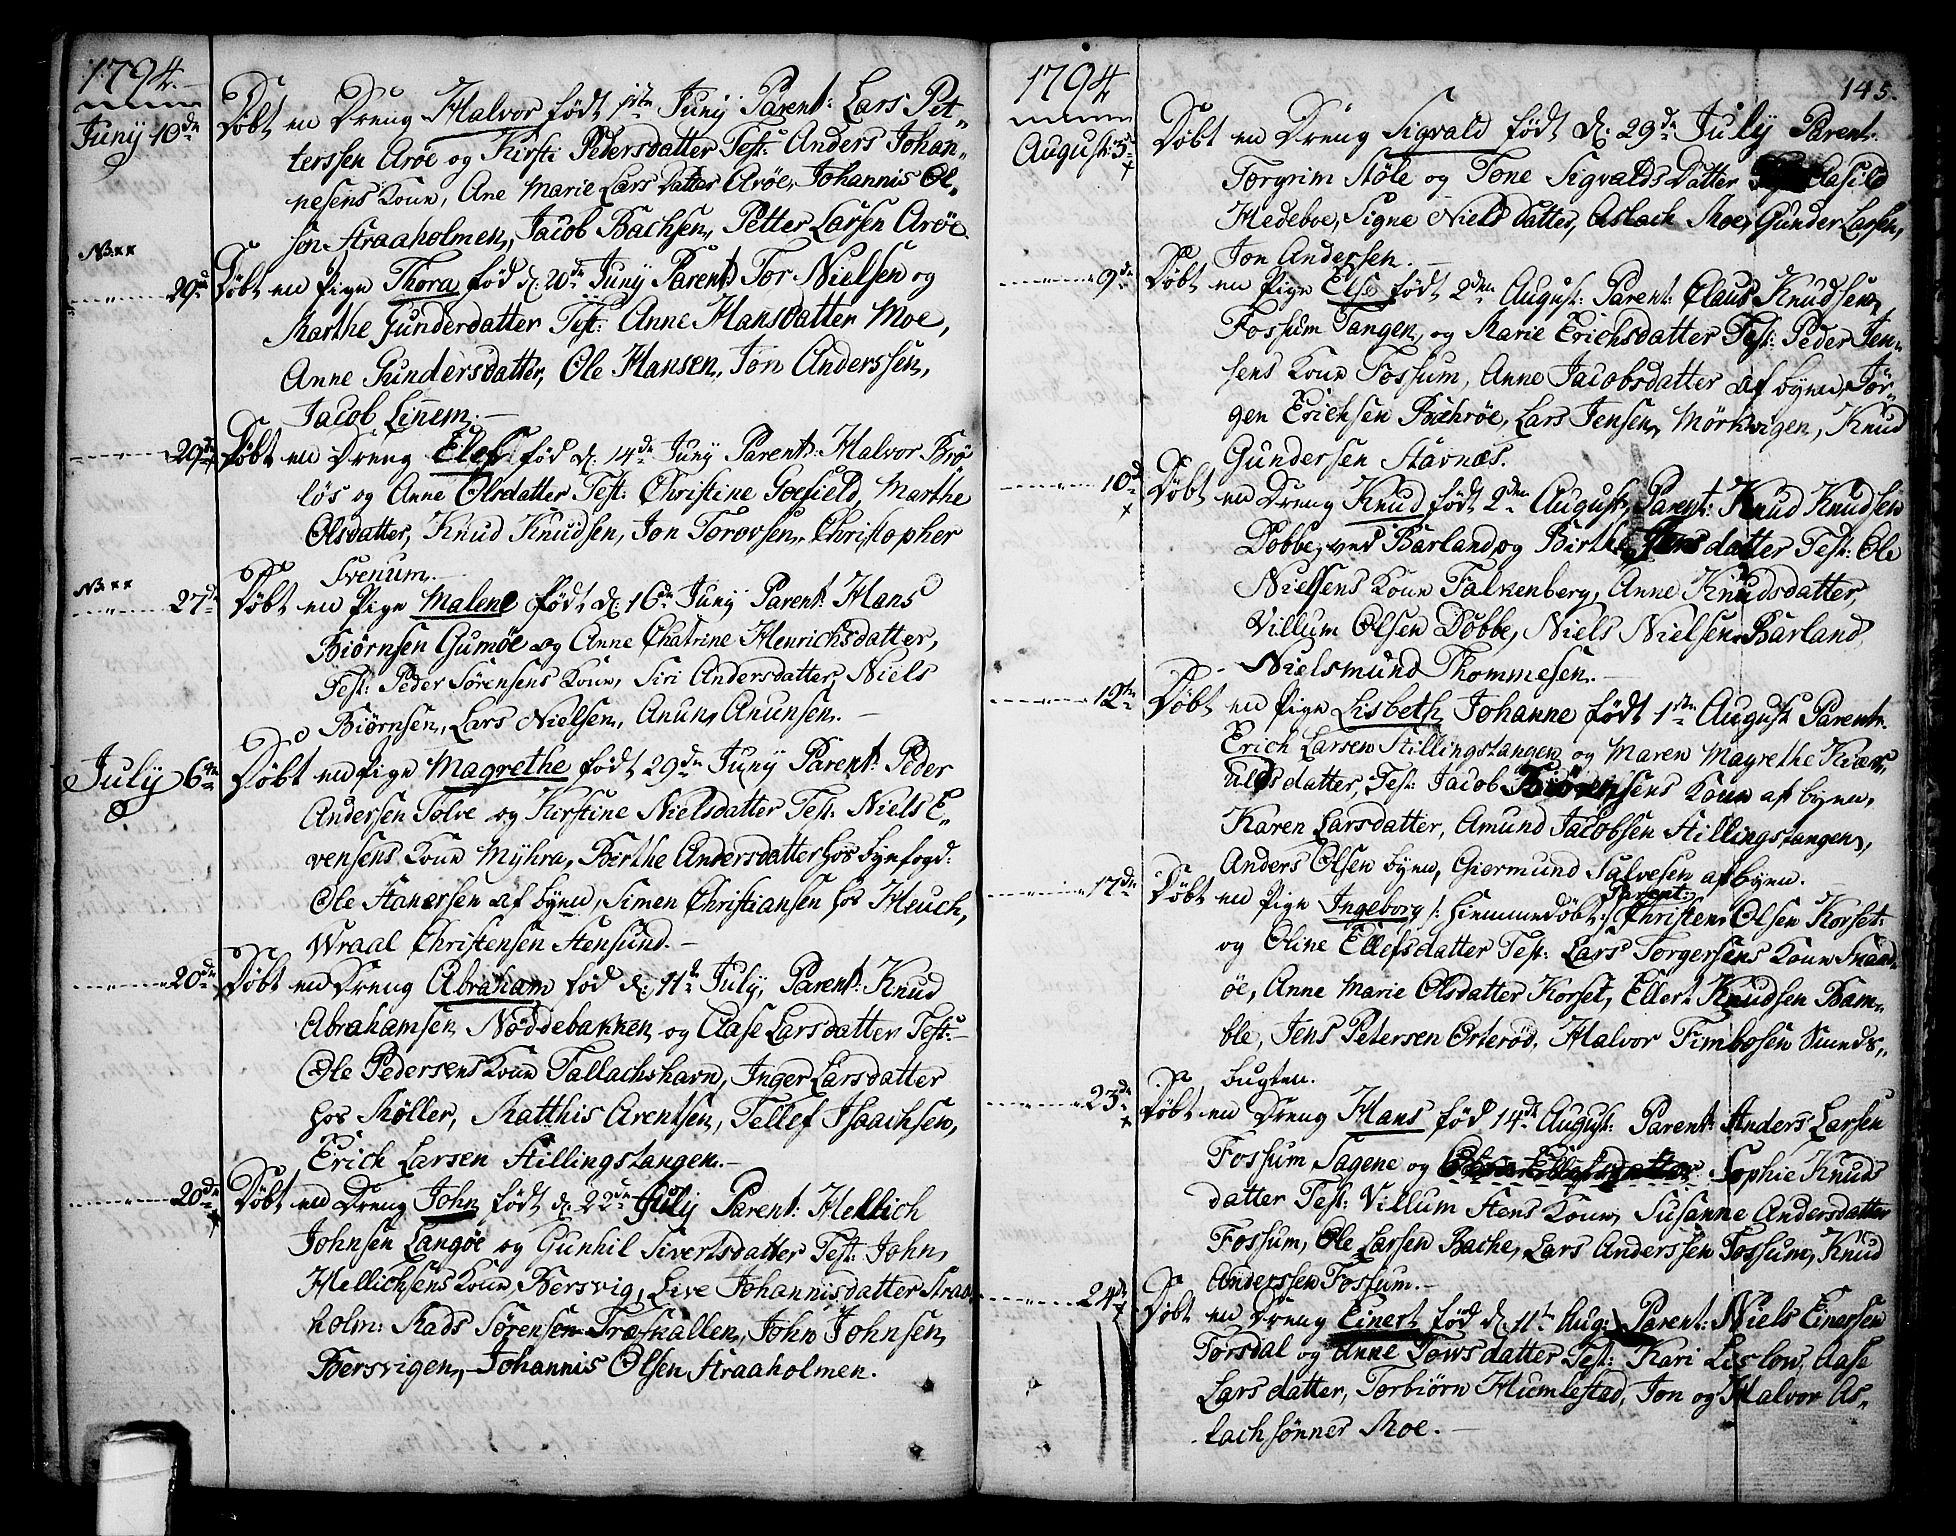 1794.
Juny 10de
Døbt en Dreng Halvor født 1ste Juny Parent: Lars Pet-
terssen Aröe og Kirsti Pedersdatter Test: Anders Johan-
nesens Kone, Ane Marie Lars datter Aröe, Johannis Ol-
sen Straaholmen, Jacob Bachsen, Petter Larsen Aröe
NB: xx
29de Døbt en Pige Thora fød d: 20de Juny Parent: Tor Nielsen og
Marthe Gunderdatter Test: Anne Hansdatter Moe,
Anne Gundersdatter, Ole Hansen, Jon Anderssen,
Jacob Linem.
29de Døbt en Dreng Elef fød d. 14de Juny Parent: Halvor Brö-
lös og Anne Olsdatter Test: Christine Goefield, Marthe
Olsdatter, Knud Knudsen, Jon Torovsen, Christopher
Svenum.
NB: xx
27de Døbt en Pige Malene født d. 16de Juny Parent: Hans
Biörnsen Gumöe og Anne Chatrine Henrichsdatter,
Test: Peder Sörensens Kone, Siri Andersdatter, Niels
Biörnsen, Lars Nielsen, Anun Anunsen.
July 6te Døbt en Pige Magrethe født 29de Juny Parent: Peder
Andersen Tolve og Kirstine Nielsdatter Test: Niels E-
vensens Kone Myhra, Berthe Andersdatter hos byefogd:
Ole Hanersen af byen, Simen Christiansen hos Heuch,
Wraal Christensen Stensund.
20de Døbt en Dreng Abraham fød d. 11te July, Parent: Knud
Abrahamsen Nöddebakken og Aase Larsdatter Test:
Ole Pedersens Kone Tallachshavn, Inger Larsdatter
hos Möller, Matthis Arentsen, Tellef Isaachsen,
Erich Larsen Stillingstangen.
20de Døbt en Dreng John født d. 22de July Parent: Hellich
Johnsen Langöe og Gunhil Sivertsdatter Test: John
Hellichsens Kone Bersvig, Live Johannisdatter Straa-
holm: Mads Sörensen Træskallen, John Johnsen
Bersvigen, Johannis Olsen Straaholmen.
145.
1794
August: 3de
Døbt en Dreng Sigvald født d: 29de July Parent.
Torgrim Stöle og Tone Sigvalds Datter Aasild
Hedeboe, Signe Niels datter, Aslach Moe, Gunder Larsen,
Jon Andersen.
9de Døbt en Pige Else født 2den August: Parent: Claus Knudsen
Fossum Tangen, og Marie Erichsdatter Test: Peder Jen-
sens Kone Fossum, Anne Jacobsdatter af byen, Jör-
gen Erichsen Buchröe, Lars Jensen Mörkvigen, Knud
Gundersen Stavnæs.
10de Døbt en Dreng Knud født 2den August, Parent: Knud Knudsen
Dobbe, ved Barland og Birthe datter Test: Ole
Nielsens Kone Falkenberg, Anne Knudsdatter,
Villum Olsen Dobbe, Niels Nielsen Barland
Nielsmund Thommesen.
12te Døbt en Pige Lisbeth Johanne født 1ste August Parent.
Erich Larsen Stillingstangen og Maren Magrethe Kiær-
ulfsdatter, Test: Jacob Kone af byen,
Karen Larsdatter, Amund Jacobsen Stillingstangen,
Anders Olsen byen, Giermund Salvesen af byen.
17de Døbt en Pige Ingeborg /: hiemmedöbt: Parent: Christen Olsen Korset:
og Oline Ellefsdatter Test: Lars Torgersens Kone
öe, Anne Marie Olsdatter Korset, Ellert Knudsen Bam-
ble, Jens Petersen Osteröd, Halvor Timbosen Sunds-
bugten.
23de Døbt en Dreng Hans fød 14de August: Parent: Anders Larsen
Fossum, Sagene og Sophie Knuds
datter Test: Villum Stens Kone, Susanne Andersdatter
Fossum, Ole Larsen Bache, Lars Anderssen Fossum, Knud
Anderssen Fossum.
24de Døbt en Dreng Einert fød d. 11te Aug: Parent: Niels Einersen
Torsdal og Anne Towsdatter Test: Kari Lislow, Aase
Larsdatter, Torbiörn Humlestad, Jon og Halvor As-
lachsönner Moe.